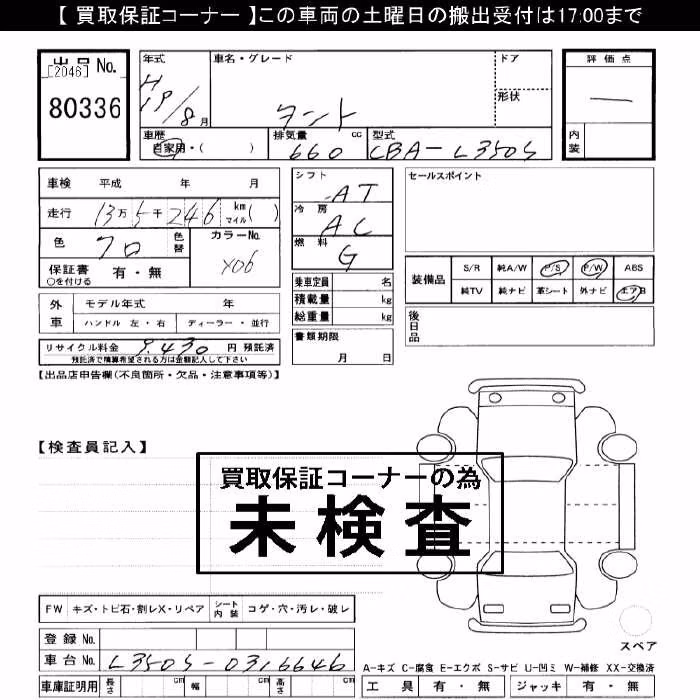 【 買取保証コーナー 】この車両の土曜日の搬出受付は17:00まで
出品 No.
[2046]
80336
年式
H 19/8月
車名・グレード
タント
ドア
形状
評価点
—
内装
車歴
自家用・( )
排気量 cc
660
型式
CBA-L350S
車検 平成 年 月
走行 13万5千246 km マイル( )
色 クロ 色替
カラーNo.
X06
保証書 有・無
○を付ける
シフト AT
冷房 AC
燃料 G
セールスポイント
装備品 S/R 純A/W P/S P/W ABS
純TV 純ナビ 革シート 外ナビ エアB
外車 モデル年式 年
ハンドル 左・右 ディーラー・並行
乗車定員 名
積載量 kg
総重量 kg
後日品
リサイクル料金 9,430 円 預託済
預託済で精算希望される方は金額記入して下さい
書類期限
月 日
【出品店申告欄(不良箇所・欠品・注意事項等)】
【検査員記入】
買取保証コーナーの為
未検査
FW キズ・トビ石・割レX・リペア シート内装 コゲ・穴・汚レ・破レ
スペア
登録No.
車台No. L350S-0316646
A-キズ C-腐食 E-エクボ S-サビ U-凹ミ W-補修 XX-交換済
車庫証明用 長さ cm 幅 cm 高さ cm
工具 有・無 ジャッキ 有・無